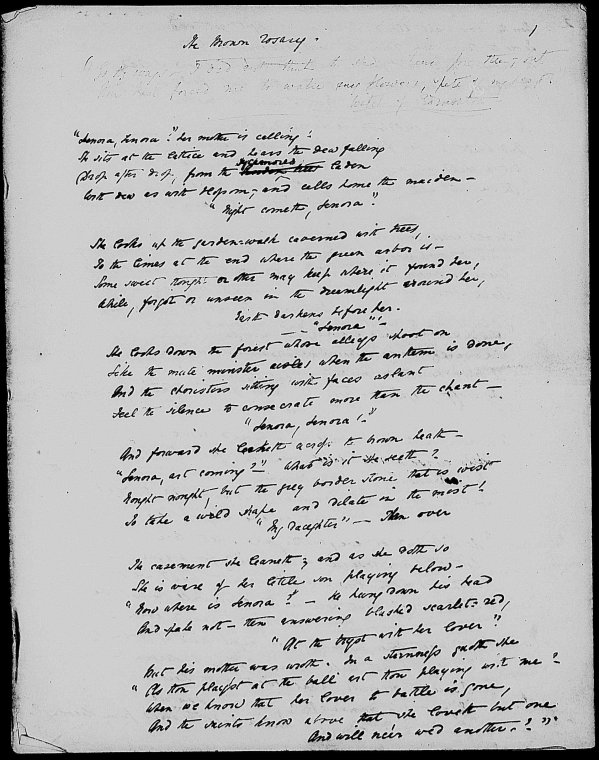 The Brown Rosary.
1
"Lenora, Lenora!" her mother is calling!
She sits at the lattice and hears the dew falling
Drop after drop, from the sycamores laden
With dew as with blossom; and calls home the maiden—
"Night cometh, Lenora".
She looks up the garden-walk caverned with trees,
To the limes at the end where the green arbor is—
Some sweet thought or other may keep where it found her,
While, forgot or unseen in the dreamlight around her,
Earth darkens before her.
— — "Lenora"!—
She looks down the forest whose alleys shoot on
Like the mute minster aisles when the anthem is done,
And the choristers sitting with faces aslant
Feel the silence to consecrate more than the chant—
"Lenora, Lenora!"
And forward she looketh across to brown heath—
"Lenora, art coming?"— what is it she seeth?
Nought, nought, but the grey border stone that is wist
To take a wild shape and dilate in the mist!
"My daughter"— Then over
The casement she leaneth; and as she doth so
She is ware of her little son playing below—
"Now where is Lenora?"— He hung down his head
And spake not— then answering blushed scarlet-red,
"At the tryst with her lover"
But his mother was wroth. In a sternness quoth she
"As thou playest at the ball art thou playing with me?
When we know that her lover to battle is gone,
And the saints know above that she loveth but one
And will ne'er wed another?"